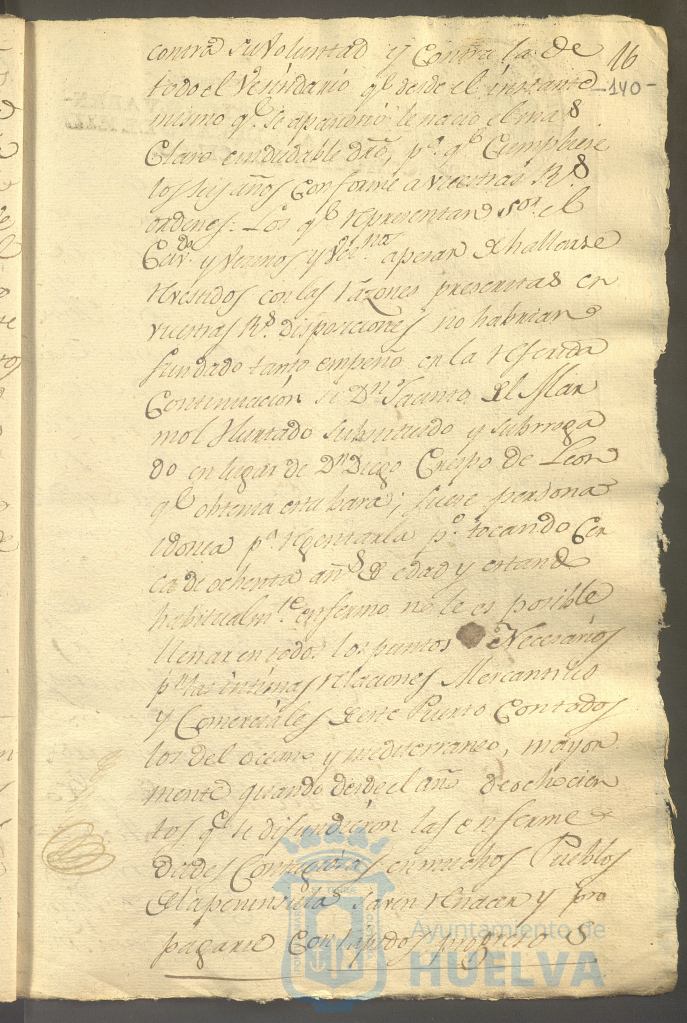 contra su voluntad y contra la de 16
todo el Vecindario qe. desde el instante -140-
mismo qe. se aparicio le nacio el mas
Claro e indudable dro, pa. qe. Cumpliese
los seis años conforme a vuestras Rs.
ordenes: Los qe. representan Sor. el
y Vecinos y apesar de hallarse
revestidos con las razones prescritas en
vuestras Rs. disposiciones no habrian
fundado tanto empeño en la referida
Continuacion si Dn. Jacinto del Mar
mol Hurtado substituido y subrroga
do en lugar de Dn Diego Crespo de Leon
qe. obtenia esta bara; fuese persona
idonea pa. regentarla po. tocando Cer
ca de ochenta añs. de edad y estando
habitualmte. enfermo no le es posible
llenar en todos los puntos Necesarios
pa. las internas relaciones Mercantiles
y Comerciales de este Puerto con todos
los del oceano y mediterraneo, mayor
mente quando desde el año de ochocien
tos qe. se difundieron las enferme
dades Contagiosas en muchos Pueblos
de la peninsula hacen renacer y pro
pagarse con rapidos progresos
Ayuntamiento de
HUELVA